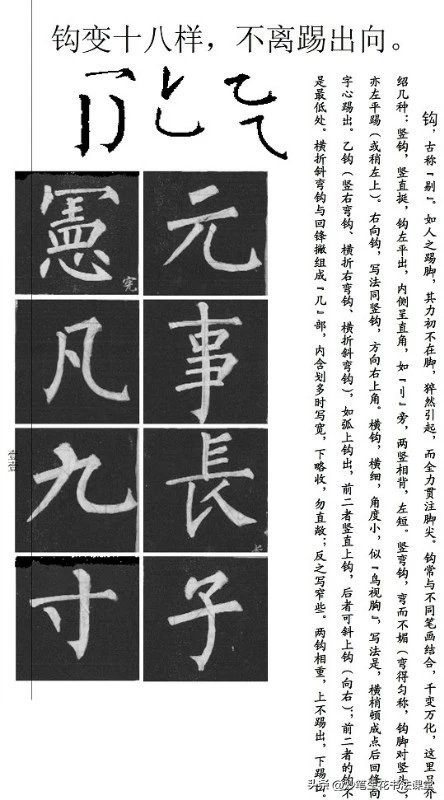 钩变十八样，不离踢出向。
钩，古称『剔』。如人之踢脚，其力初不在脚，猝然引起，而全力贯注脚尖。钩常与不同笔画结合，千变万化，这里只介
绍几种：竖钩，竖直挺，钩左平出，内侧呈直角，如『刂』旁，两竖相背，左短。竖弯钩，弯而不媚（弯得匀称，钩脚对竖头），
亦左平踢（或稍左上）。右向钩，写法同竖钩，方向右上角。横钩，横细，角度小，似『鸟视胸』，写法是，横梢顿成点后回锋向
字心踢出。乙钩（竖右弯钩、横折右弯钩、横折斜弯钩），如弧上钩出，前二者竖直上钩，后者可斜上钩（向右）；前二者的钩不
是最低处。横折斜弯钩与回锋撇组成『几』部，内含划多时写宽，下略收，勿直敞；反之写窄些。两钩相重，上不踢出，下踢出。
元
事
長
子
憲
宪
凡
九
寸
头条@妙笔生花书法课堂